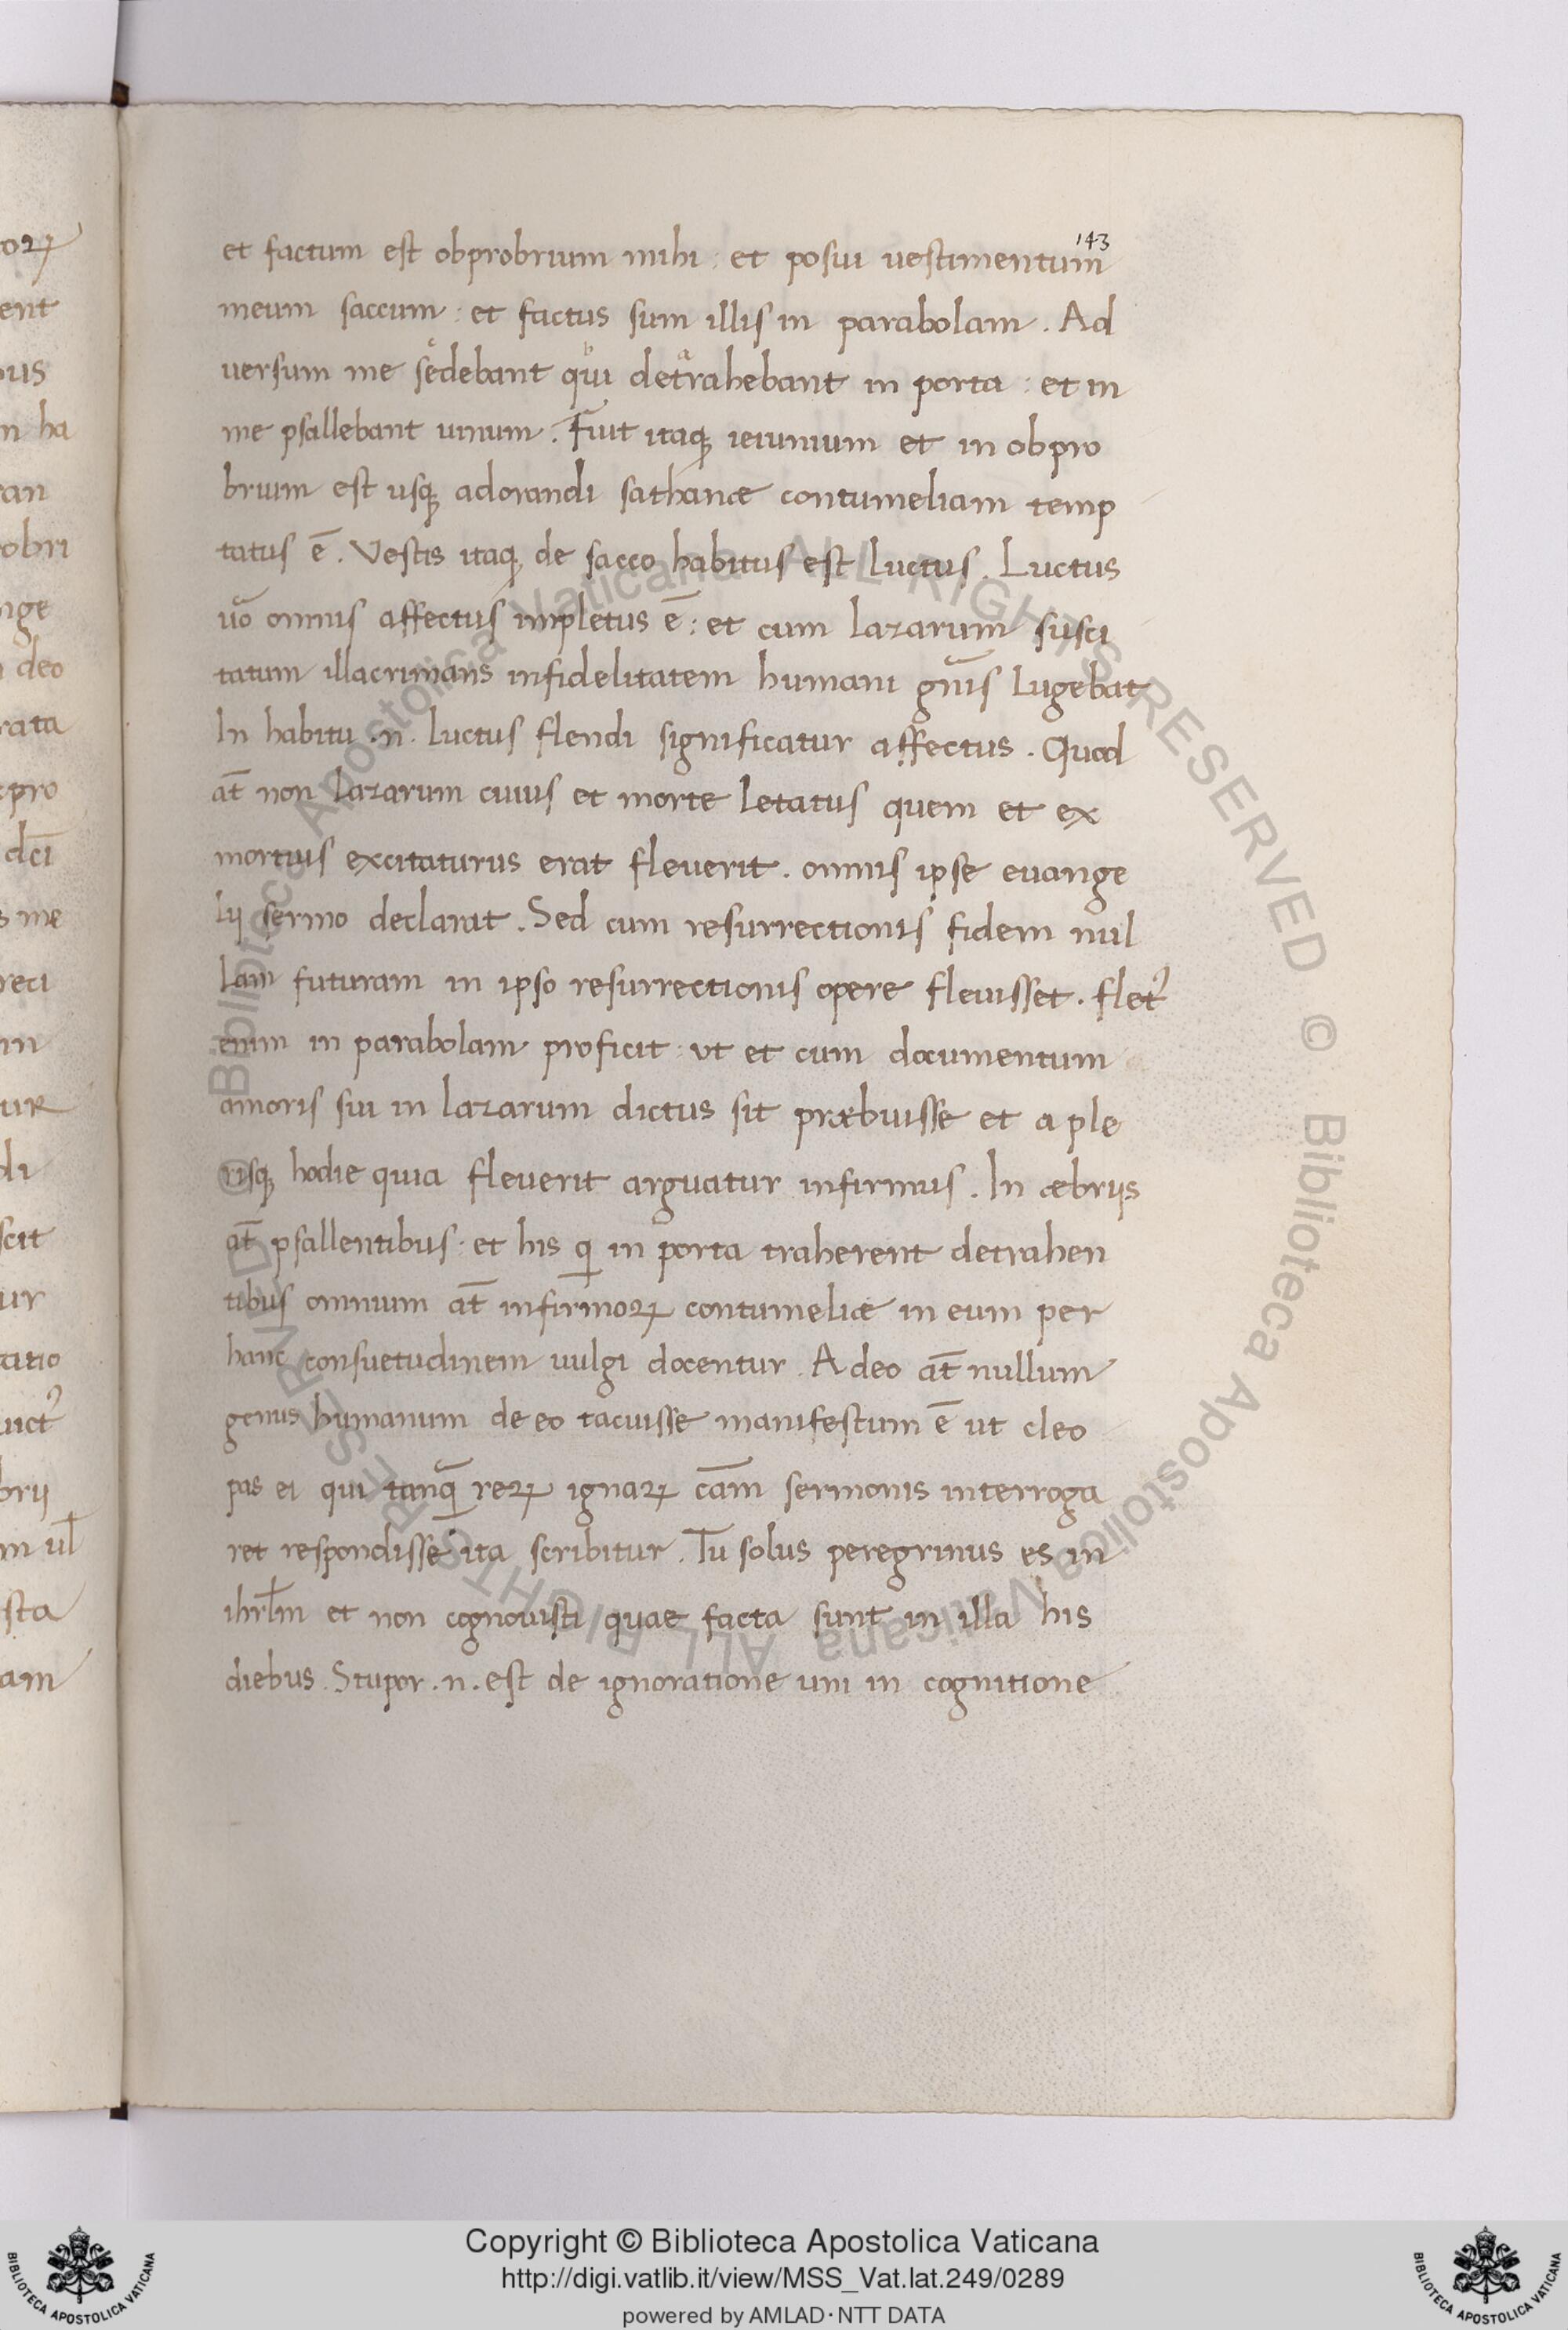 143
et factum est obprobrium mihi : et posui uestimentum
meum saccum : et factus sum illis in parabolam . Ad
uersum me sedebant qui detrahebant in porta : et in
me psallebant uinum . Fuit itaq; ieiunium et in obpro
brium est usq; adorandi sathanæ contumeliam temp
tatus ē . Vestis itaq; de sacco habitus est luctus . Luctus
uo᷃ omnis affectus impletus ē : et cum lazarum susci
tatum illacrimans infidelitatem humani gn̄is lugebat
In habitu .n. luctus flendi significatur affectus . Quod
at̄ non lazarum cuius et morte letatus quem et ex
mortuis excitaturus erat fleuerit . omnis ipse euange
lij sermo declarat . Sed cum resurrectionis fidem nul
lam futuram in ipso resurrectionis opere fleuisset . flet᾽
enim in parabolam proficit : ut et cum documentum
amoris sui in lazarum dictus sit præbuisse et a ple
risq; hodie quia fleuerit arguatur infirmus . In æbrijs
at̄ psallentibus : et his q in porta traherent detrahen
tibus omnium at̄ infirmoꝝ contumeliæ in eum per
hanc consuetudinem uulgi docentur . Adeo at̄ nullum
genus humanum de eo tacuisse manifestum ē ut cleo
pas ei qui tanq̄ reꝝ ignaꝝ cām sermonis interroga
ret respondisse ita scribitur . Tu solus peregrinus es in
ihrl̄m et non cognouisti quae facta sunt in illa his
diebus . Stupor .n. est de ignoratione uni in cognitione
oꝝ
ent
ous
n ha
ran
obri
nge
deo
rata
pro
dc̄i
s me
reci
in
ur
di
scit
ur
tatio
uict᾽
brij
m ul̄
sta
am
Biblioteca Apostolica Vaticana ALL RIGHTS RESERVED © Biblioteca Apostolica Vaticana ALL RIGHTS RESERVED ©
Copyright © Biblioteca Apostolica Vaticana
http://digi.vatlib.it/view/MSS_Vat.lat.249/0289
powered by AMLAD·NTT DATA
BIBLIOTECA APOSTOLICA VATICANA
BIBLIOTECA APOSTOLICA VATICANA